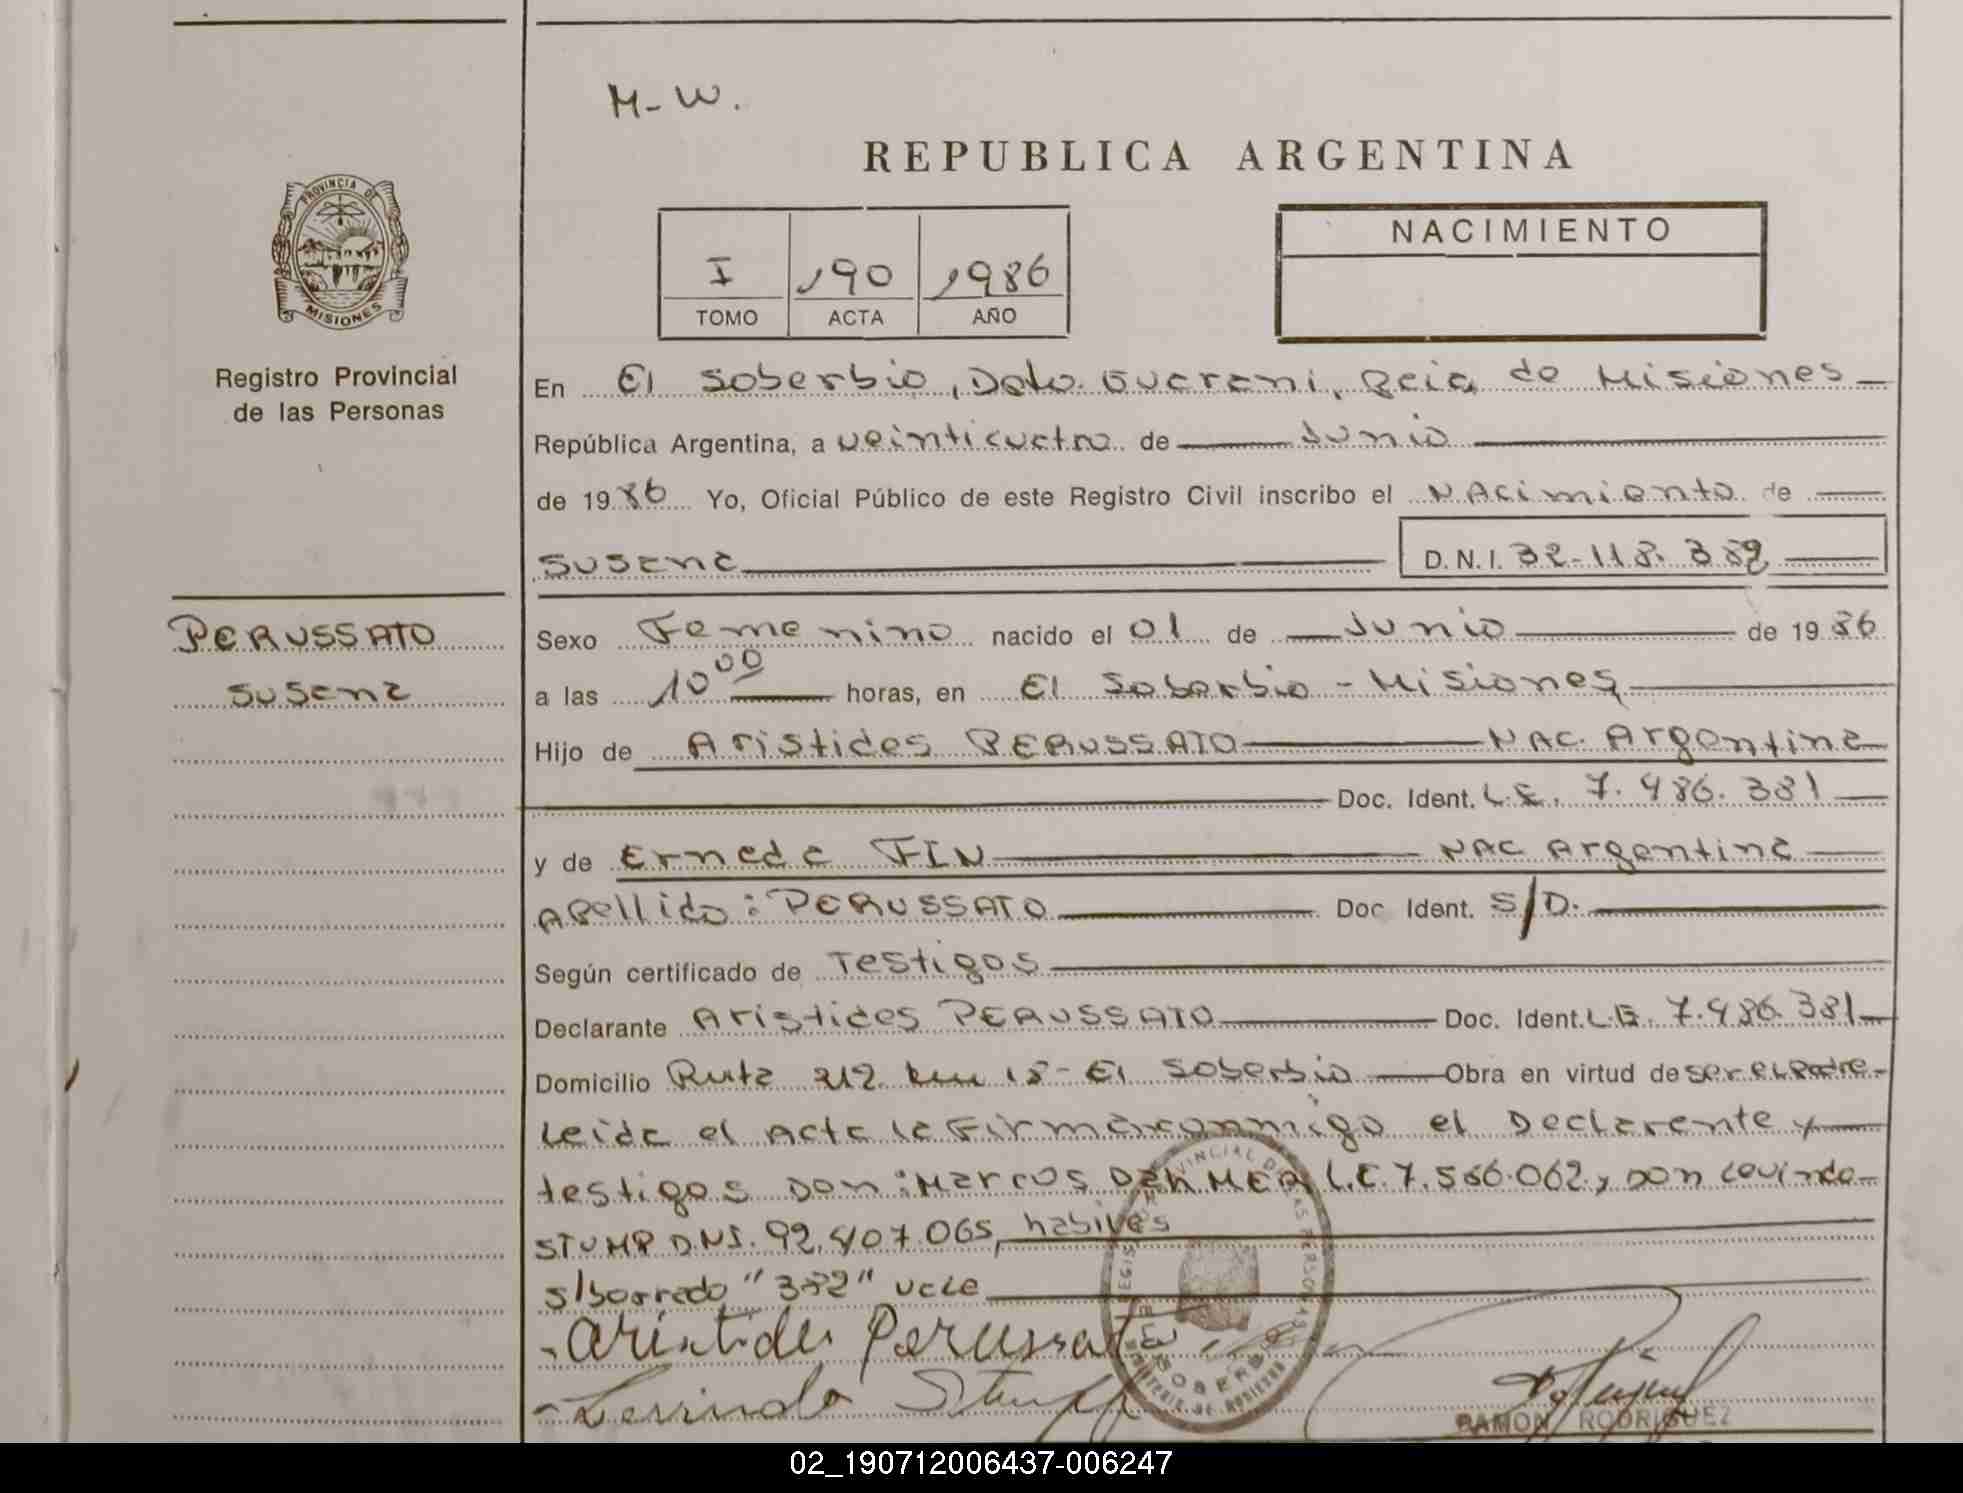 M-W.
REPUBLICA ARGENTINA
PROVINCIA DE
MISIONES
Registro Provincial
de las Personas
I 190 1986
TOMO ACTA AÑO
NACIMIENTO
En El Soberbio, Dpto. Guarani, Pcia de Misiones
República Argentina, a veinticuatro de Junio
de 1986 Yo, Oficial Público de este Registro Civil inscribo el NAcimiento de
Susana D.N.I. 32-118.382
PERUSSATO
Susana
Sexo Femenino nacido el 01 de Junio de 1986
a las 10 00 horas, en El Soberbio - Misiones
Hijo de Aristides PERUSSATO NAC. Argentina
Doc. Ident. L.E. 7.486.381
y de Erneda FIN NAC Argentina
Apellido: PERUSSATO Doc Ident. S/D.
Según certificado de Testigos
Declarante Aristides PERUSSATO Doc. Ident. L.E. 7.486.381
Domicilio Ruta 212 km 18 - El Soberbio Obra en virtud de ser el Padre
Leida el Acta la Firman conmigo el Declarante y
testigos Don: Marcos DAHMER L.E. 7.566.062, y Don Levindo
STUMP D.N.I. 92.407.065, habiles
s/borrado "382" vale
Aristides Perussato
Levindo Stumpf
RAMON RODRIGUEZ
02_190712006437-006247